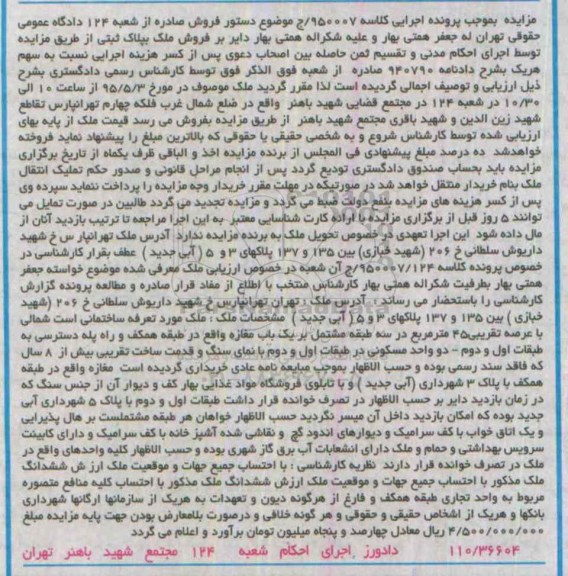 مزایده بموجب پرونده اجرایی کلاسه ۹۵۰۰۰۷/ج موضوع دستور فروش صادره از شعبه ۱۲۴ دادگاه عمومی
حقوقی تهران له جعفر همتی بهار و علیه شکراله همتی بهار دایر بر فروش ملک بپلاک ثبتی از طریق مزایده
توسط اجرای احکام مدنی و تقسیم ثمن حاصله بین اصحاب دعوی پس از کسر هزینه اجرایی نسبت به سهم
هریک بشرح دادنامه ۹۴۰۷۹۰ صادره از شعبه فوق الذکر فوق توسط کارشناس رسمی دادگستری بشرح
ذیل ارزیابی و توصیف اجمالی گردیده است لذا مقرر گردید ملک موصوف در مورخ ۹۵/۵/۳ از ساعت ۱۰ الی
۱۰/۳۰ در شعبه ۱۲۴ در مجتمع قضایی شهید باهنر واقع در ضلع شمال غرب فلکه چهارم تهرانپارس تقاطع
شهید زین الدین و شهید باقری مجتمع شهید باهنر از طریق مزایده بفروش می رسد قیمت ملک از پایه بهای
ارزیابی شده توسط کارشناس شروع و به شخصی حقیقی یا حقوقی که بالاترین مبلغ را پیشنهاد نماید فروخته
خواهدشد ده درصد مبلغ پیشنهادی فی المجلس از برنده مزایده اخذ و الباقی ظرف یکماه از تاریخ برگزاری
مزایده باید بحساب صندوق دادگستری تودیع گردد پس از انجام مراحل قانونی و صدور حکم تملیک انتقال
ملک بنام خریدار منتقل خواهد شد در صورتیکه در مهلت مقرر خریدار وجه مزایده را پرداخت ننماید سپرده وی
پس از کسر هزینه های مزایده بنفع دولت ضبط می گردد و مزایده تجدید می گردد طالبین در صورت تمایل می
توانند ۵ روز قبل از برگزاری مزایده با ارائه کارت شناسایی معتبر به این اجرا مراجعه تا ترتیب بازدید آنان از
مال داده شود این اجرا تعهدی در خصوص تحویل ملک به برنده مزایده ندارد آدرس ملک تهرانپارس خ شهید
داریوش سلطانی خ ۲۰۶ (شهید خبازی) بین ۱۳۵ و ۱۳۷ پلاکهای ۳ و ۵ (آبی جدید) عطف بقرار کارشناسی در
خصوص پرونده کلاسه ۹۵۰۰۰۷/۱۲۴/ج آن شعبه در خصوص ارزیابی ملک معرفی شده موضوع خواسته جعفر
همتی بهار بطرفیت شکراله همتی بهار کارشناس منتخب با اطلاع از مفاد قرار صادره و مطالعه پرونده گزارش
کارشناسی را باستحضار می رساند : آدرس ملک : تهران تهرانپارس خ شهید داریوش سلطانی خ ۲۰۶ (شهید
خبازی) بین ۱۳۵ و ۱۳۷ پلاکهای ۳ و ۵ (آبی جدید) مشخصات ملک : ملک مورد تعرفه ساختمانی است شمالی
با عرصه تقریبی۴۵ مترمربع در سه طبقه مشتمل بر یک باب مغازه واقع در طبقه همکف و راه پله دسترسی به
طبقات اول و دوم - دو واحد مسکونی در طبقات اول و دوم با نمای سنگ و قدمت ساخت تقریبی بیش از ۸ سال
که فاقد سند رسمی بوده و حسب الاظهار بموجب مبایعه نامه عادی خریداری گردیده است مغازه واقع در طبقه
همکف با پلاک ۳ شهرداری (آبی جدید) و با تابلوی فروشگاه مواد غذایی بهار کف و دیوار آن از جنس سنگ که
در زمان بازدید دایر بر حسب الاظهار در تصرف خوانده قرار داشت طبقات اول و دوم با پلاک ۵ شهرداری آبی
جدید بوده که امکان بازدید داخل آن میسر نگردید حسب الاظهار خواهان هر طبقه مشتملست بر هال پذیرایی
و یک اتاق خواب با کف سرامیک و دیوارهای اندود گچ و نقاشی شده آشپز خانه با کف سرامیک و دارای کابینت
سرویس بهداشتی و حمام و ملک دارای انشعابات آب برق گاز شهری بوده و حسب الاظهار کلیه واحدهای واقع در
ملک در تصرف خوانده قرار دارند نظریه کارشناسی : با احتساب جمیع جهات و موقعیت ملک ارزش ششدانگ
ملک مذکور با احتساب جمیع جهات و موقعیت ملک ارزش ششدانگ ملک مذکور با احتساب کلیه منافع متصوره
مربوط به واحد تجاری طبقه همکف و فارغ از هرگونه دیون و تعهدات به هریک از سازمانها ارگانها شهرداری
بانکها و هریک از اشخاص حقیقی و حقوقی و هر گونه خلافی و درصورت بلامعارض بودن جهت پایه مزایده مبلغ
۴/۵۰۰/۰۰۰/۰۰۰ ریال معادل چهارصد و پنجاه میلیون تومان برآورد و اعلام می گردد
۱۱۰/۳۶۶۰۴ دادورز اجرای احکام شعبه ۱۲۴ مجتمع شهید باهنر تهران